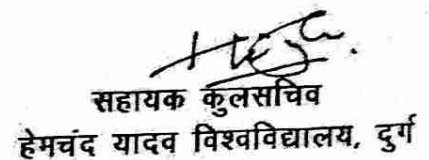 सहायक कुलसचिव
हेमचंद यादव विश्वविद्यालय, दुर्ग